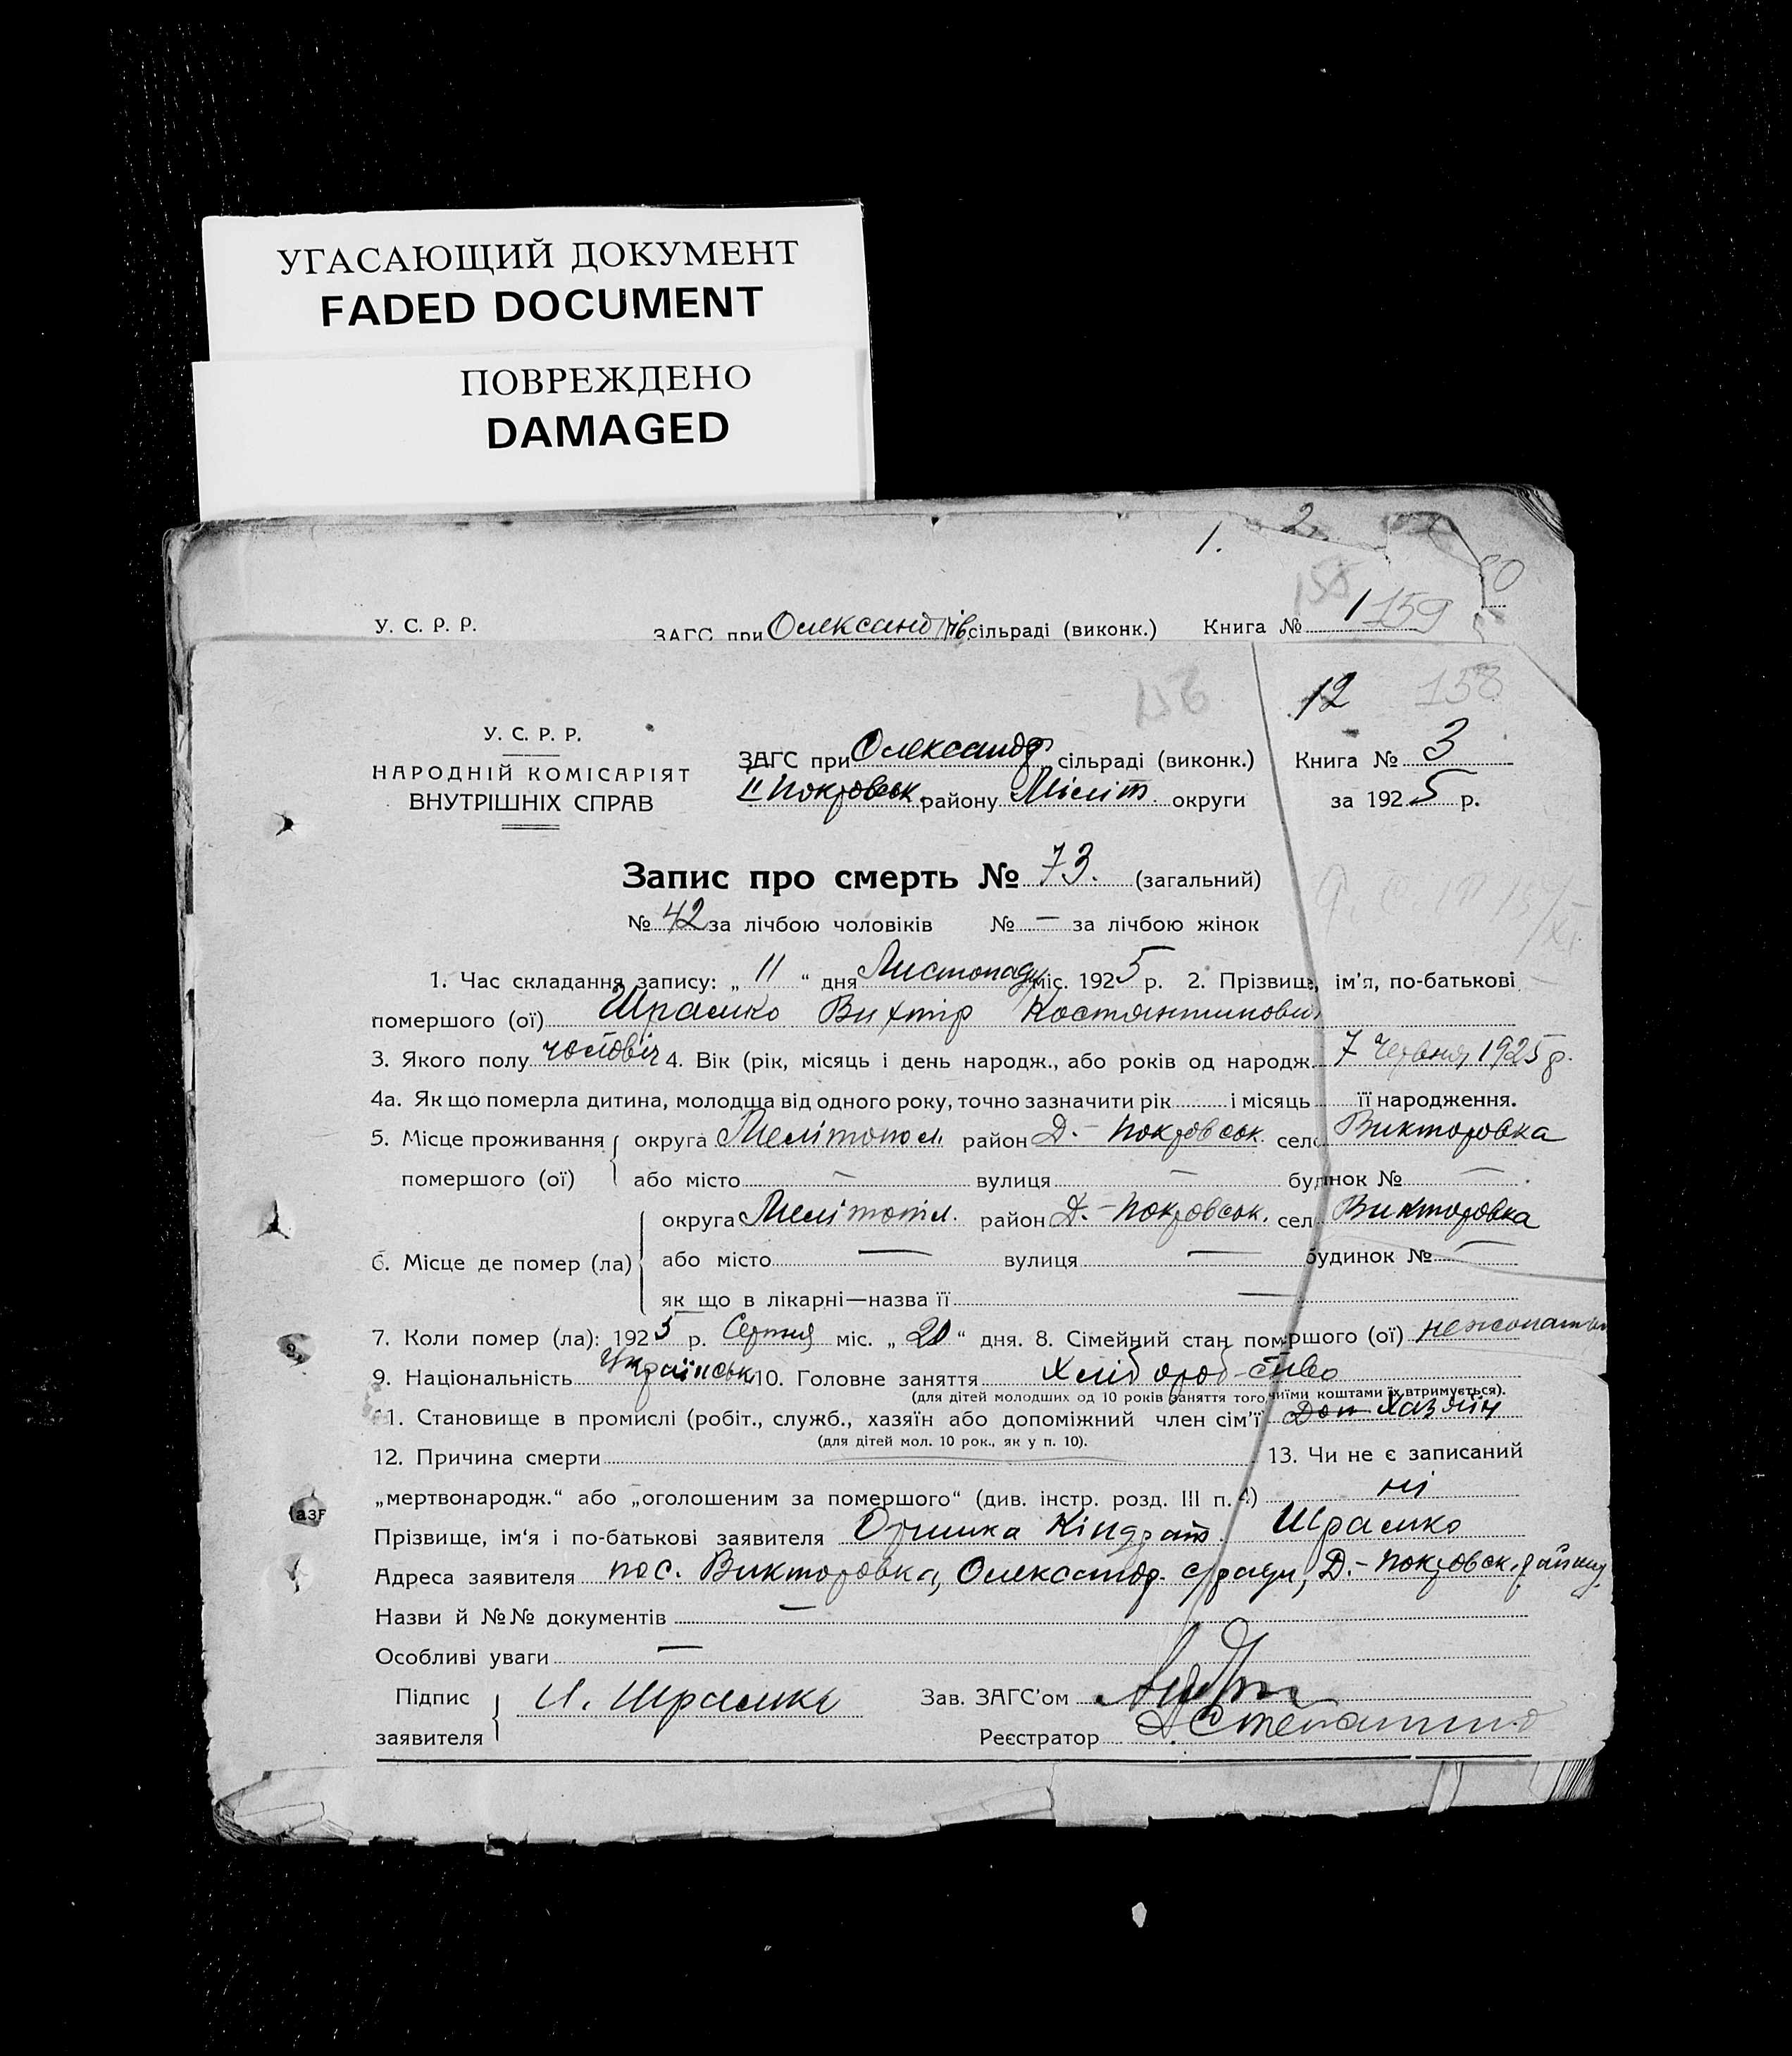 УГАСАЮЩИЙ ДОКУМЕНТ
FADED DOCUMENT
ПОВРЕЖДЕНО
DAMAGED
1. 2.
158
У. С. Р. Р. ЗАГС при Олександрів сільраді (виконк.) Книга № 1 159
156 12 158
У. С. Р. Р.
НАРОДНІЙ КОМІСАРІЯТ
ВНУТРІШНІХ СПРАВ
ЗАГС при Олександр. сільраді (виконк.) Книга № 3
II Покровськ. району Меліт. округи за 1925 р.
Запис про смерть № 73. (загальний)
№ 42 за лічбою чоловіків № — за лічбою жінок
1. Час складання запису: „ 11 “ дня Листопада міс. 1925 р. 2. Прізвище, ім’я, по-батькові
помершого (ої) Шрамко Віхтір Костянтинович
3. Якого полу чоловіч 4. Вік (рік, місяць і день народж., або років од народж. 7 Червня 1925 р.
4а. Як що померла дитина, молодша від одного року, точно зазначити рік і місяць її народження.
5. Місце проживання помершого (ої) округа Мелітопол. район Д.-Покровськ. село Викторовка
або місто — вулиця — будинок № —
6. Місце де помер (ла) округа Мелітопіл. район Д.-Покровськ. село Викторовка
або місто — вулиця — будинок № —
як що в лікарні—назва її —
7. Коли помер (ла): 1925 р. Серпня міс. „ 20 “ дня. 8. Сімейний стан помершого (ої) нежонатий
9. Національність Українськ 10. Головне заняття Хліборобство
(для дітей молодших од 10 років заняття того, чиїми коштами їх втримується).
11. Становище в промислі (робіт., служб., хазяїн або допоміжний член сім’ї Доп Хазяїн
(для дітей мол. 10 рок., як у п. 10).
12. Причина смерти 13. Чи не є записаний
„мертвонародж.“ або „оголошеним за помершого“ (див. інстр. розд. III п. 4) ні
Прізвище, ім‘я і по-батькові заявителя Кіндрат. Шрамко
Адреса заявителя пос. Викторовка, Олександр. с/ради, Д.-Покровськ. району
Назви й №№ документів —
Особливі уваги —
Підпис заявителя Шрамко Зав. ЗАГС’ом
Реєстратор